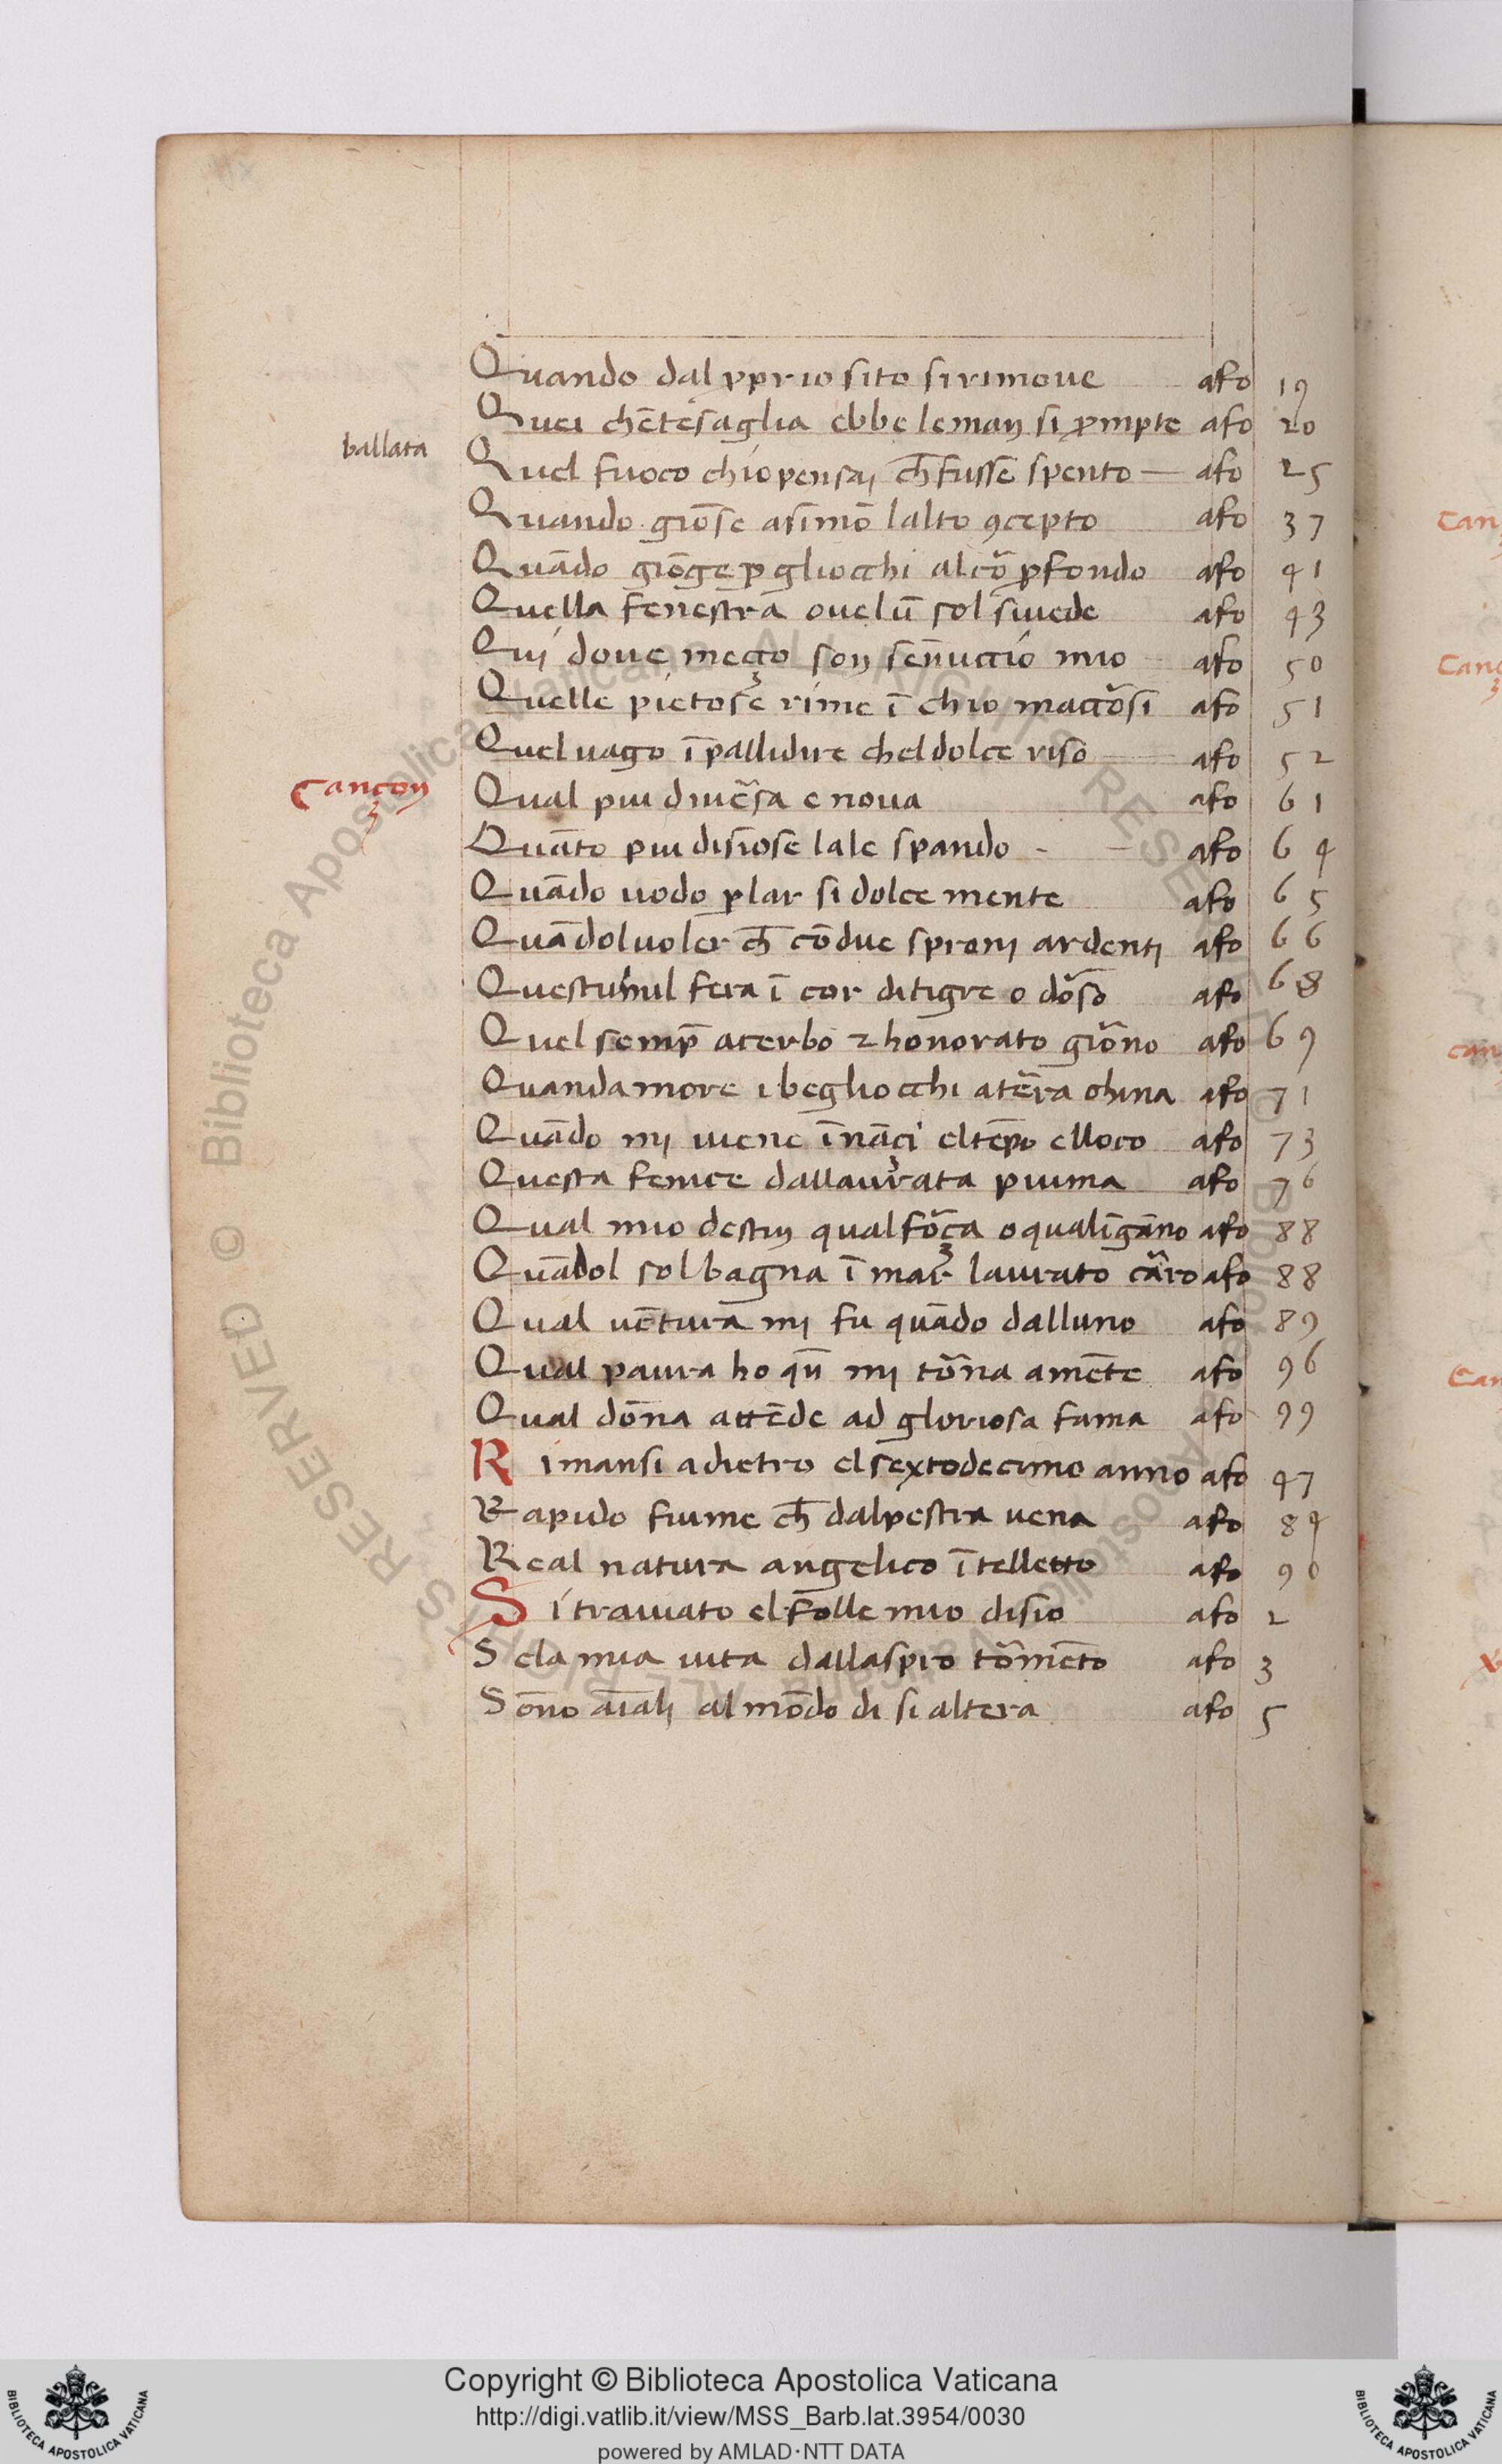 Quando dal ꝓprio sito si rimoue afo 19
Quei chē tesaglia ebbe le man si ꝓmpte afo 20
ballata Quel fuoco chio pensai ch̄ fusse spento afo 25
Quando giōse asimō lalto ꝯcepto afo 37
Quādo giōge ꝑ gliocchi al cor̄ ꝓfondo afo 41
Quella fenestra ouelū sol siuede afo 43
Qui doue meço son sēnuccio mio afo 50
Quelle pietose rime ī chio maccorsi afo 51
Quel uago īpallidire chel dolce riso afo 52
Cançon Qual piu diuersa e noua afo 61
Quāto piu disiose lale spando afo 64
Quādo uodo ꝑlar si dolce mente afo 65
Quādol uoler ch̄ cōdue sproni ardenti afo 66
Questuhnil fera ī cor di tigre o dorso afo 68
Quel semp̄ acerbo ⁊ honorato giorno afo 69
Quandamore i begliocchi aterra china afo 71
Quādo mi uiene īnāçi eltēpo elloco afo 73
Questa fenice dallaurata piuma afo 76
Qual mio destin qual força o qualīgāno afo 88
Quādol sol bagna ī mar laurato carro afo 88
Qual uētura mi fu quādo dalluno afo 89
Qual paura ho qn̄ mi torna amēte afo 96
Qual dōna attēde ad gloriosa fama afo 99
Rimansi adietro el sextodecimo anno afo 47
Rapido fiume ch̄ dalpestra uena afo 84
Real natura angelico ītelletto afo 90
Si trauiato el folle mio disio afo 2
Se la mia uita dallaspro tormēto afo 3
Sōno aīali al mōdo di si altera afo 5
Can
Canç
can
Can
© Biblioteca Apostolica Vaticana ALL RIGHTS RESERVED
Copyright © Biblioteca Apostolica Vaticana
http://digi.vatlib.it/view/MSS_Barb.lat.3954/0030
powered by AMLAD·NTT DATA
BIBLIOTECA APOSTOLICA VATICANA
BIBLIOTECA APOSTOLICA VATICANA